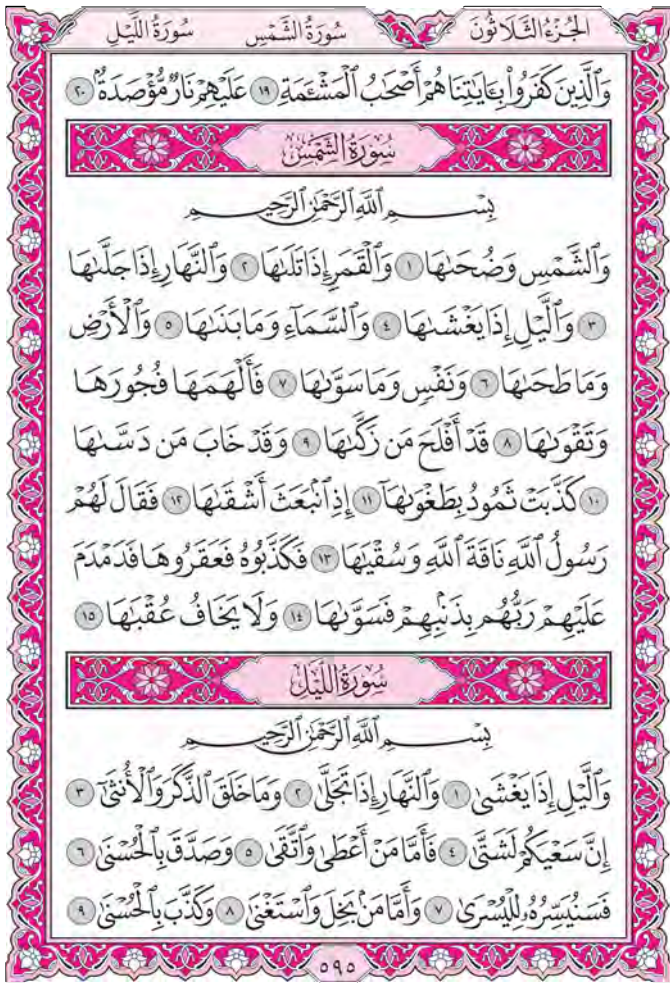 الجُزْءُ الثَّلَاثُونَ سُورَةُ الشَّمْسِ سُورَةُ اللَّيْلِ
وَٱلَّذِينَ كَفَرُواْ بِـَٔايَٰتِنَا هُمْ أَصْحَٰبُ ٱلْمَشْـَٔمَةِ ١٩ عَلَيْهِمْ نَارٌ مُّؤْصَدَةٌۢ ٢٠
سُورَةُ الشَّمْسِ
بِسْمِ ٱللَّهِ ٱلرَّحْمَٰنِ ٱلرَّحِيمِ
وَٱلشَّمْسِ وَضُحَىٰهَا ١ وَٱلْقَمَرِ إِذَا تَلَىٰهَا ٢ وَٱلنَّهَارِ إِذَا جَلَّىٰهَا
٣ وَٱلَّيْلِ إِذَا يَغْشَىٰهَا ٤ وَٱلسَّمَآءِ وَمَا بَنَىٰهَا ٥ وَٱلْأَرْضِ
وَمَا طَحَىٰهَا ٦ وَنَفْسٍ وَمَا سَوَّىٰهَا ٧ فَأَلْهَمَهَا فُجُورَهَا
وَتَقْوَىٰهَا ٨ قَدْ أَفْلَحَ مَن زَكَّىٰهَا ٩ وَقَدْ خَابَ مَن دَسَّىٰهَا
١٠ كَذَّبَتْ ثَمُودُ بِطَغْوَىٰهَآ ١١ إِذِ ٱنۢبَعَثَ أَشْقَىٰهَا ١٢ فَقَالَ لَهُمْ
رَسُولُ ٱللَّهِ نَاقَةَ ٱللَّهِ وَسُقْيَٰهَا ١٣ فَكَذَّبُوهُ فَعَقَرُوهَا فَدَمْدَمَ
عَلَيْهِمْ رَبُّهُم بِذَنۢبِهِمْ فَسَوَّىٰهَا ١٤ وَلَا يَخَافُ عُقْبَٰهَا ١٥
سُورَةُ اللَّيْلِ
بِسْمِ ٱللَّهِ ٱلرَّحْمَٰنِ ٱلرَّحِيمِ
وَٱلَّيْلِ إِذَا يَغْشَىٰ ١ وَٱلنَّهَارِ إِذَا تَجَلَّىٰ ٢ وَمَا خَلَقَ ٱلذَّكَرَ وَٱلْأُنثَىٰٓ ٣
إِنَّ سَعْيَكُمْ لَشَتَّىٰ ٤ فَأَمَّا مَنْ أَعْطَىٰ وَٱتَّقَىٰ ٥ وَصَدَّقَ بِٱلْحُسْنَىٰ ٦
فَسَنُيَسِّرُهُۥ لِلْيُسْرَىٰ ٧ وَأَمَّا مَنۢ بَخِلَ وَٱسْتَغْنَىٰ ٨ وَكَذَّبَ بِٱلْحُسْنَىٰ ٩
٥٩٥